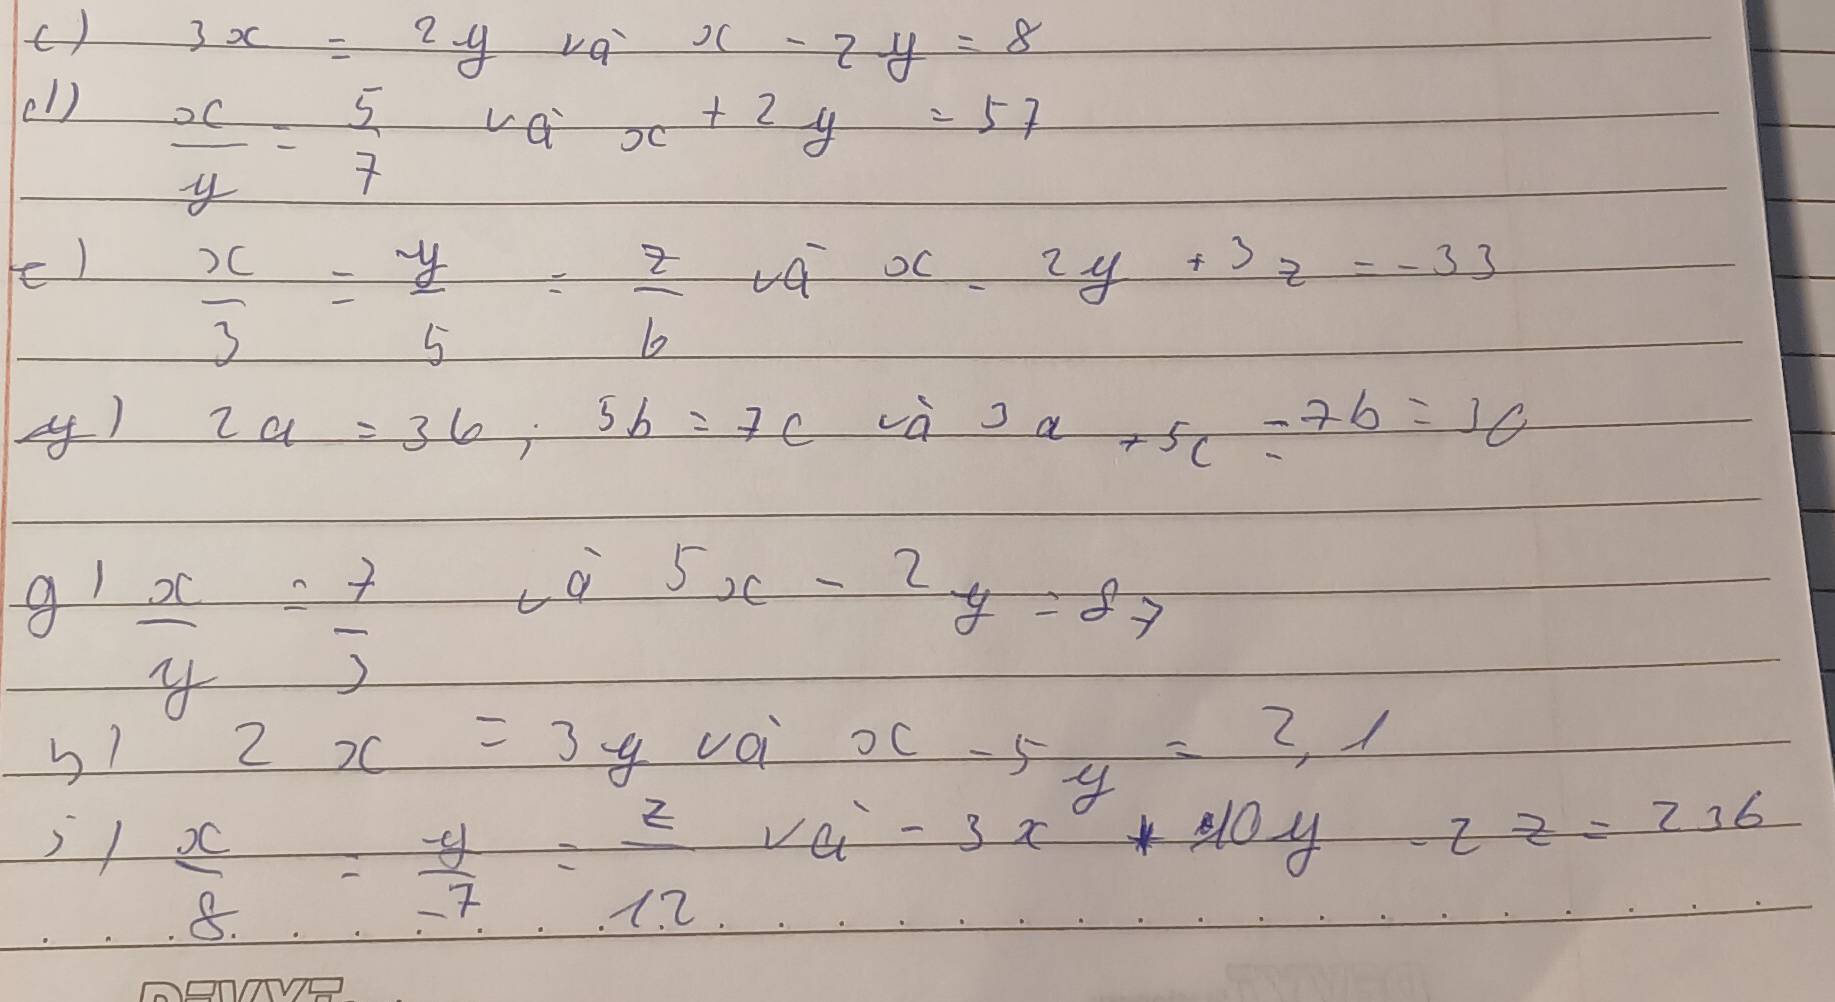 c) 3x = 2y và x - 2y = 8
d) x/y = 5/7 và x + 2y = 57
e) x/3 = y/5 = z/6 và x - 2y + 3z = -33
y) 2a = 3b; 5b = 7c và 3a + 5c = 7b = 30
g) x/y = 7/3 và 5x - 2y = 87
h) 2x = 3y và x - 5y = 2,1
i) x/8 = y/-7 = z/12 và - 3x + 10y - 2z = 236